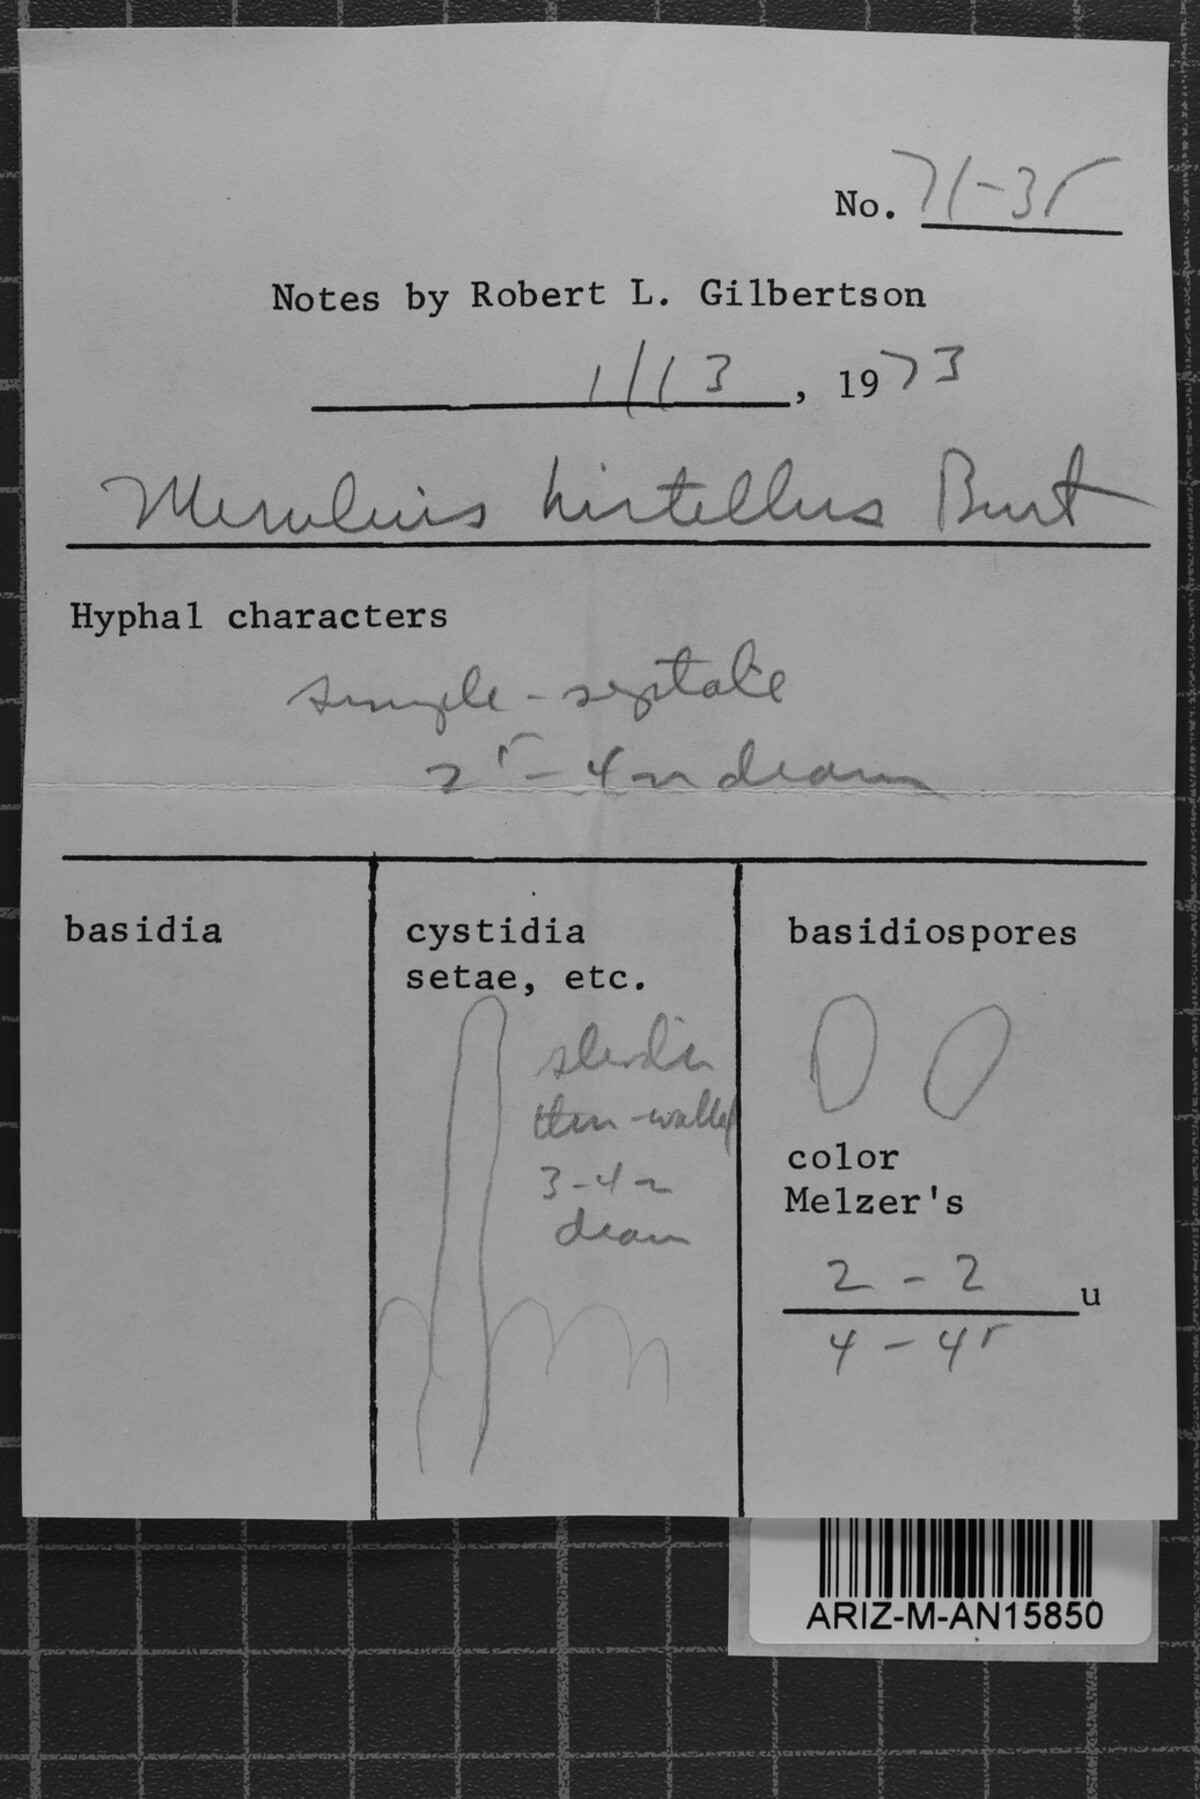 No. 71-35
Notes by Robert L. Gilbertson
1/13, 1973
Merulius hirtellus Burt
Hyphal characters
simple-septate
2⁵-4μ diam
basidia
cystidia
setae, etc.
slender
thin-walled
3-4μ
diam
basidiospores
color
Melzer's
2-2 u
4-4⁵
ARIZ-M-AN15850